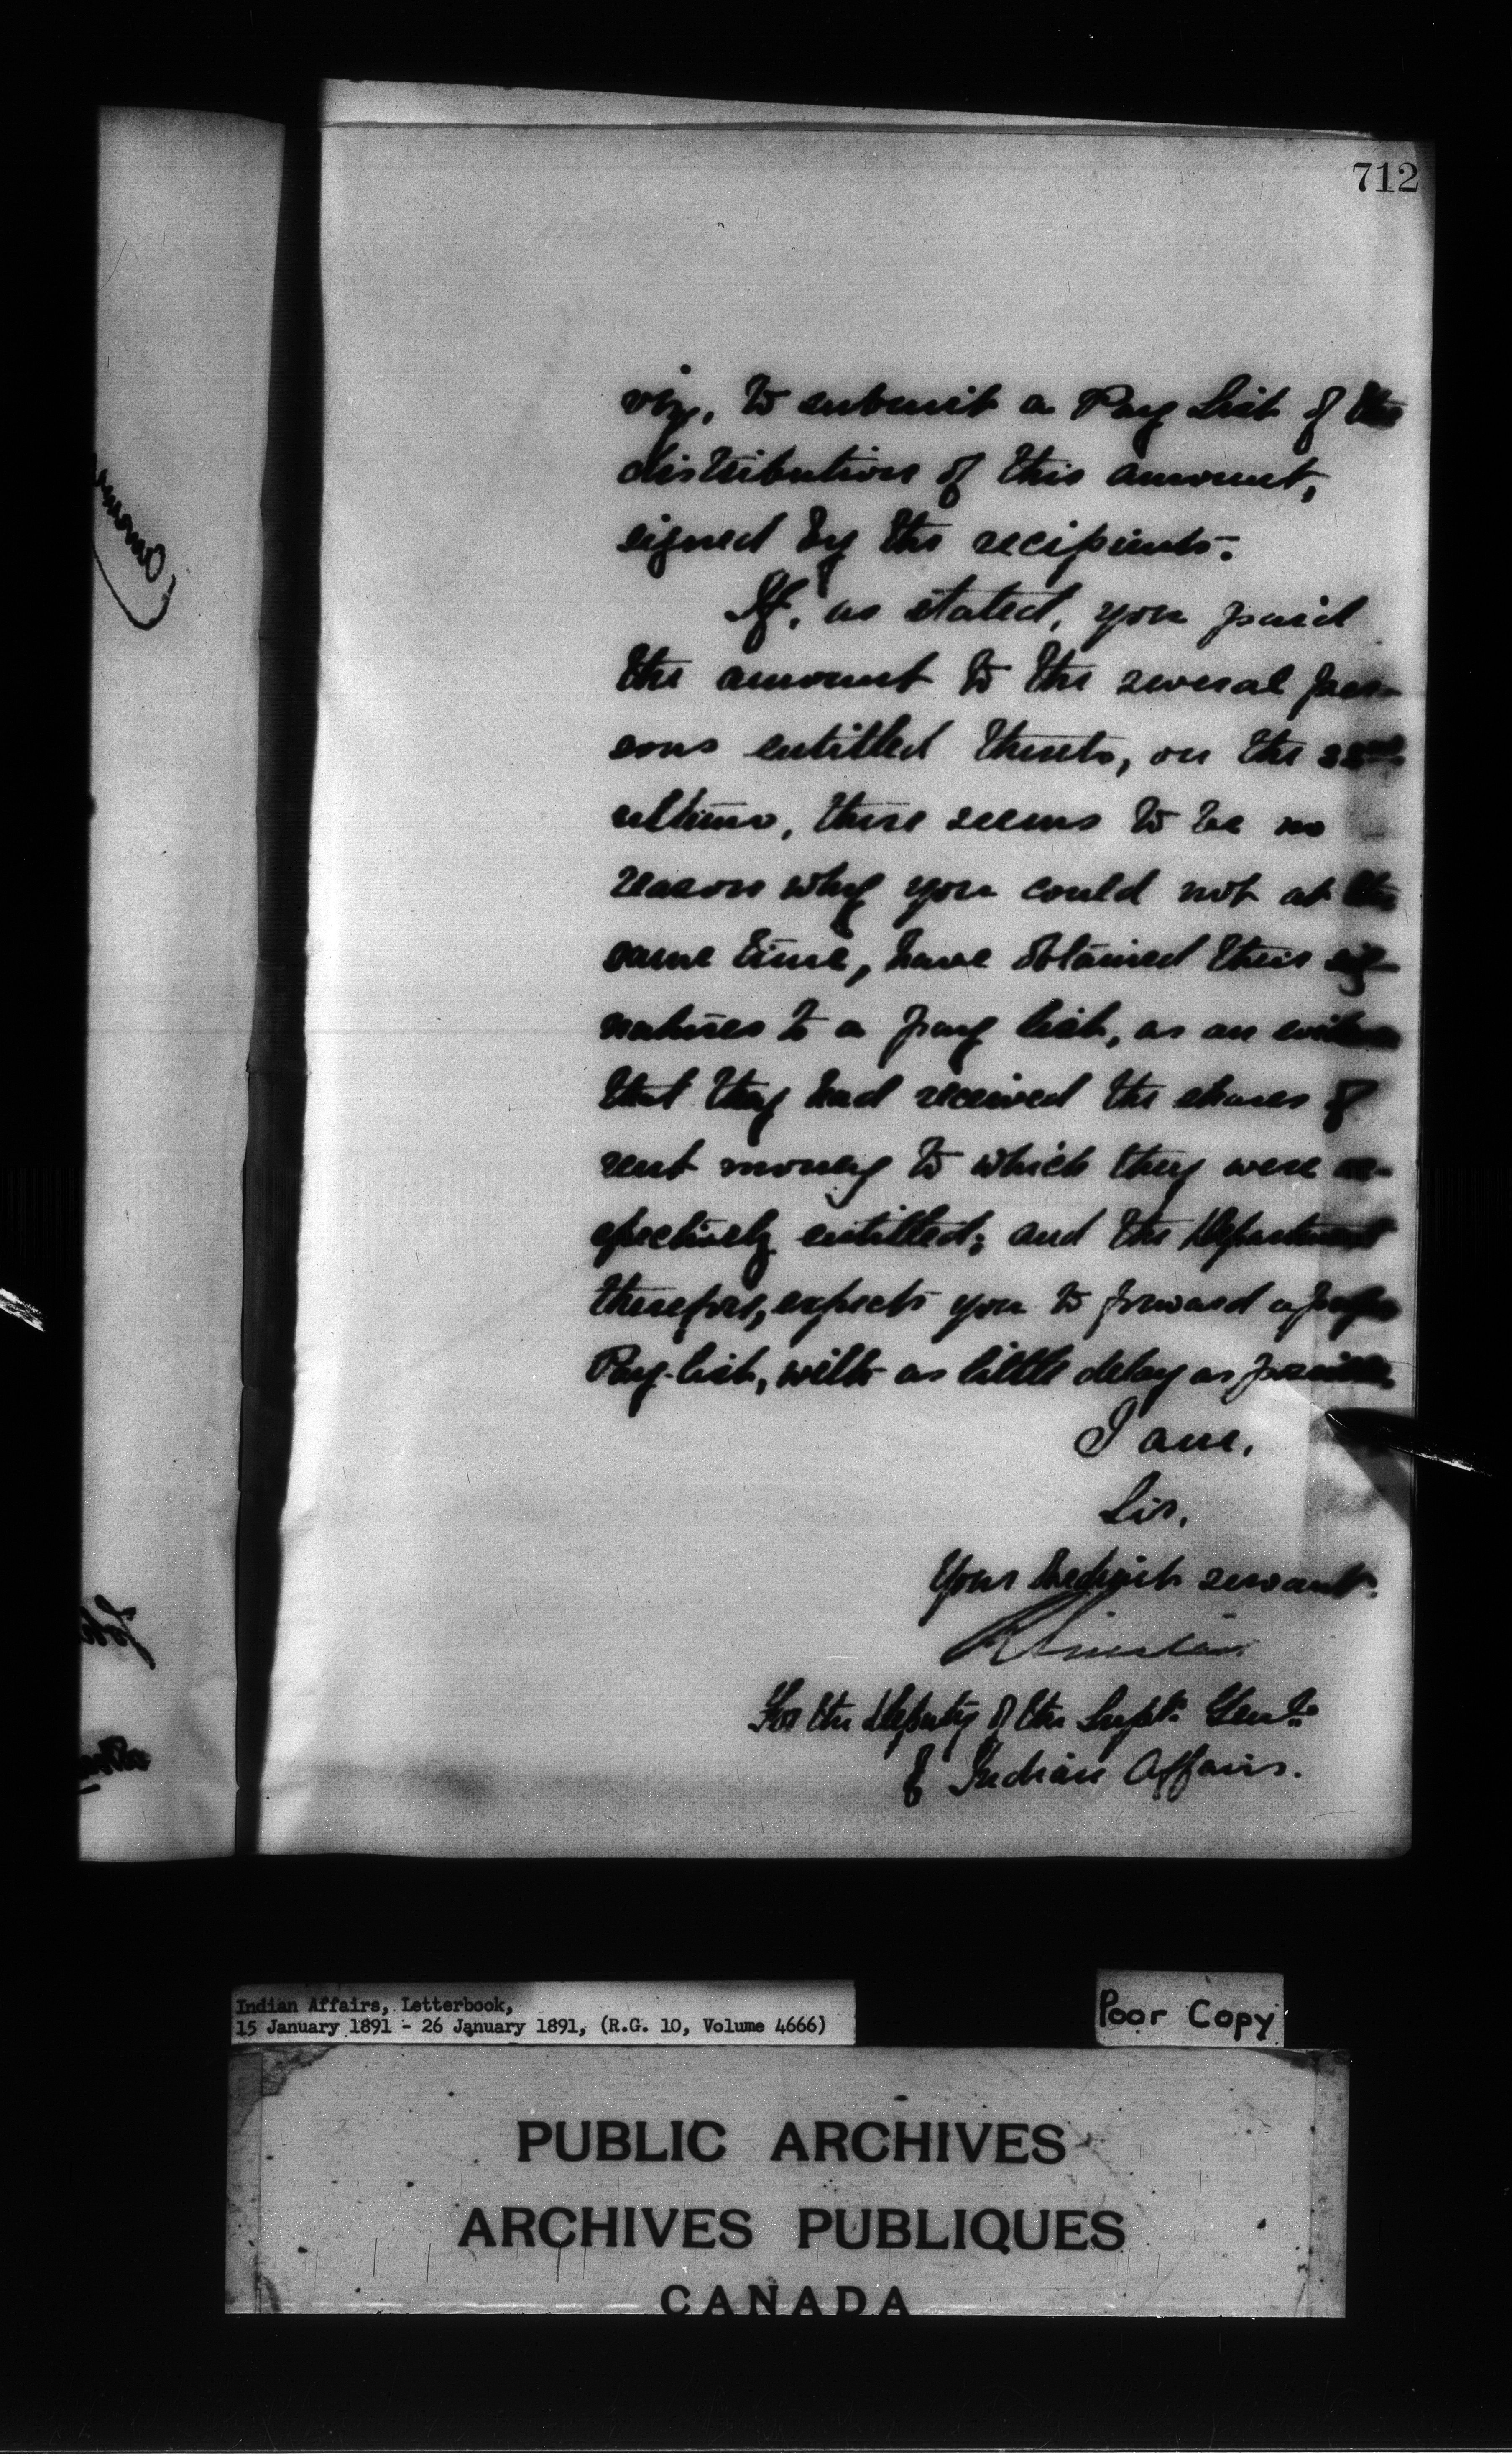 712
viz, to submit a Pay List of the
distribution of this amount,
signed by the recipients.
If, as stated, you paid
the amount to the several per-
sons entitled thereto, on the 22nd
ultimo, there seems to be no
reason why you could not at the
same time, have obtained their sig-
natures to a pay list, as an evidence
that they had received the shares of
rent money to which they were re-
spectively entitled; and the Department
therefore, expects you to forward a proper
Pay-list, with as little delay as possible.
I am,
Sir,
Your obedient servant.
For the Deputy of the Supt. Genl.
of Indian Affairs.
Indian Affairs, Letterbook,
15 January 1891 - 26 January 1891, (R.G. 10, Volume 4666)
Poor Copy
PUBLIC ARCHIVES
ARCHIVES PUBLIQUES
CANADA